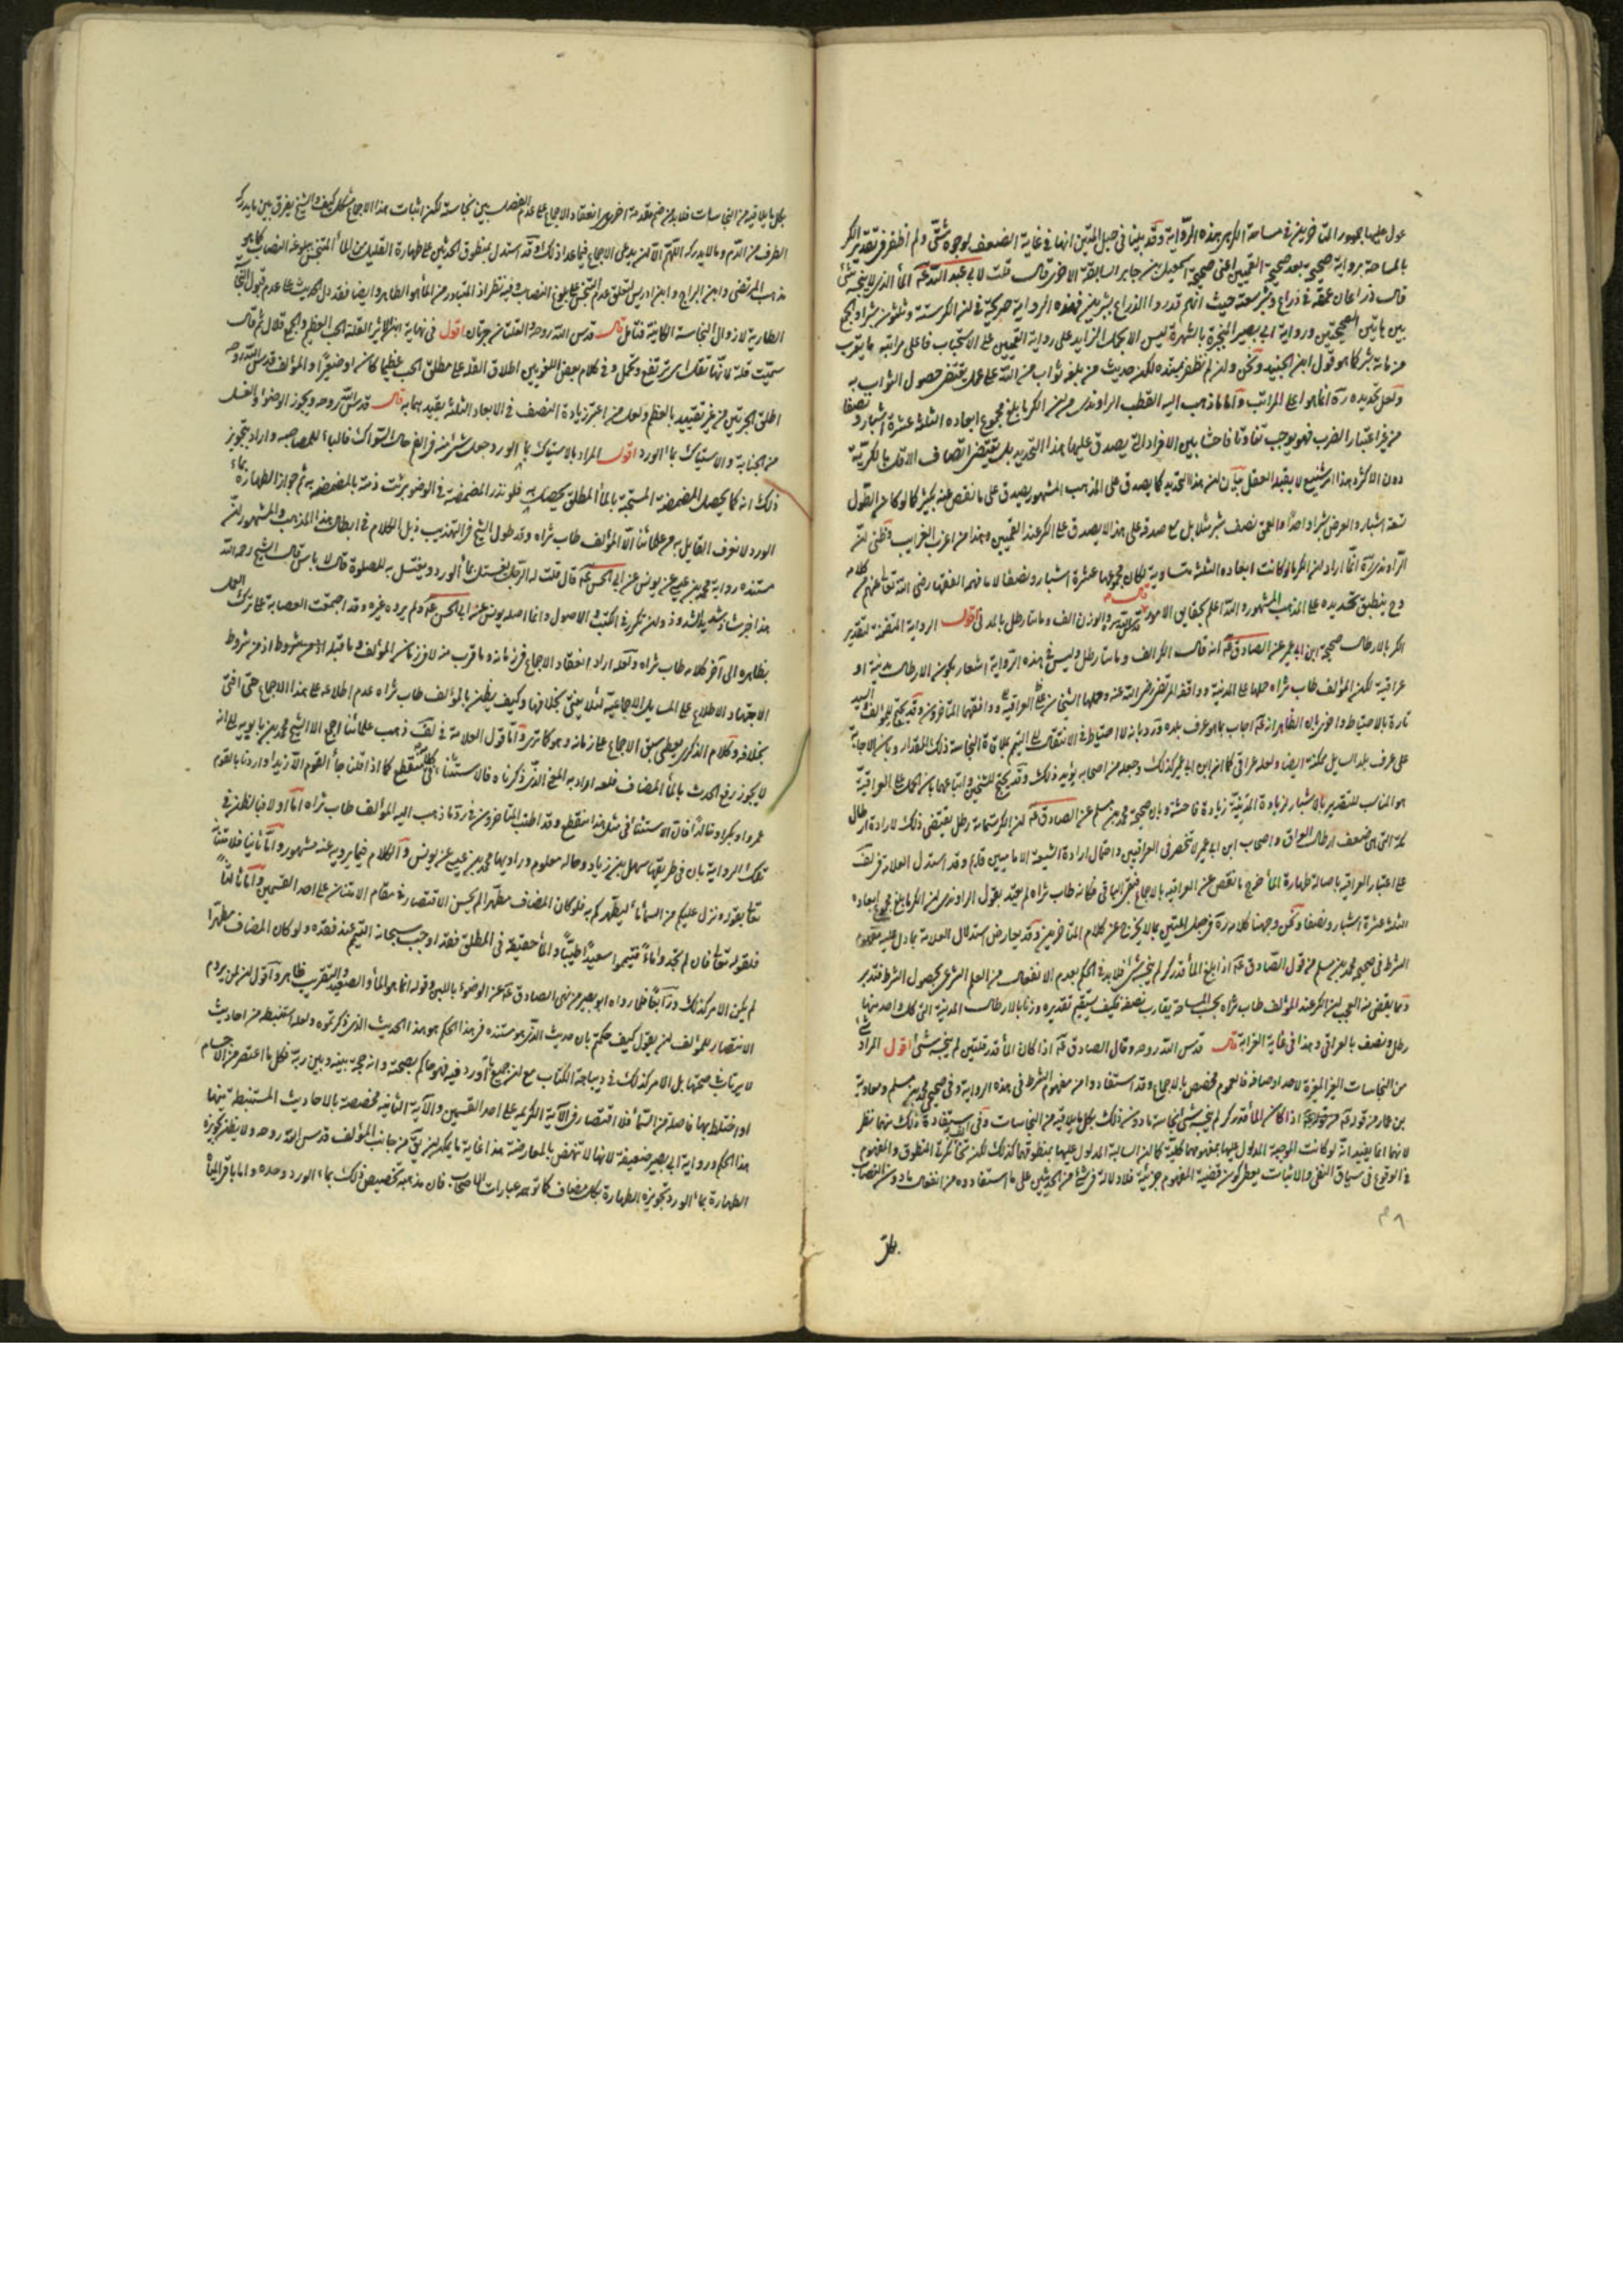 عول عليها جمهور المتاخرين في مساحة الكر هي هذه الرواية وقد بينا في حبل المتين انها في غاية الضعف لوجوه شتى ولم اظفر في تقدير الكر
بالمساحة برواية صحيحة بعد صحيحة القميين اعني صحيحة اسمعيل بن جابر السابقة الا خرى قال قلت لابي عبد الله عم الماء الذي لا ينجسه شئ
قال ذراعان عمقه في ذراع وشبر سعته حيث انهم قدروا الذراع بشبرين فهذه الرواية صريحة في ان الكر ستة وثلثون شبرا والجمع
بين هاتين الصحيحتين ورواية ابي بصير المنجبرة بالشهرة ليس الا بحمل الزايد على رواية القميين على الاستحباب فاعلى مراتبه ما يقرب
من ماية شبر كما هو قول ابن الجنيد ونحن وان لم نظفر بمستنده لكن حديث من بلغه ثواب من الله على عمل يقتضي حصول الثواب به
ولعل تحديده ره انما هو اعلى المراتب واما ما ذهب اليه القطب الراوندي من ان الكر ما بلغ مجموع ابعاده الثلثة عشرة اشبار ونصفا
من غير اعتبار الضرب فهو يوجب تفاوتا فاحشا بين الافراد التي يصدق عليها هذا التحديد بل يقتضي اتصاف الاقل بالكرية
دون الاكثر وهذا امر شنيع لا يقبله العقل بيان ان هذا التحديد كما يصدق على المذهب المشهور يصدق على ما نقص عنه بكثير كما لو كان الطول
تسعة اشبار والعرض شبرا واحدا والعمق نصف شبر مثلا بل مع صدقه على هذا لا يصدق على الكر عند القميين وهذا من اعزب الغرايب وظني ان
الراوندي ره انما اراد ان الكر ما لو كانت ابعاده الثلثة متساوية لكان مجموعها عشرة اشبار ونصفا لا ما فهمه الفقهاء رضي الله تعالى عنهم من كلامه
وح ينطبق تحديده على المذهب المشهور والله اعلم بحقايق الامور قال قدس الله سره والوزن الف ومائتا رطل بالمدني اقول الرواية المتضمنة لتقدير
الكر بالارطال صحيحة ابن ابي عمير عن الصادق عم انه قال الكر الف ومائتا رطل وليس في هذه الرواية اشعار بكون الارطال مدنية او
عراقية لكن المؤلف طاب ثراه حملها على المدنية ووافقه المرتضى رضي الله عنه وحملها الشيخان على العراقية ووافقهما المتاخرون وقد يحتج للمؤلف والسيد
تارة بالاحتياط واخرى بان الظاهر انه عم اجاب بما هو عرف بلده ورد بانه لا احتياط في الانتقال الى التيمم بملاقاة النجاسة ذلك المقدار وبان الاجابة
على عرف بلد السايل ممكنة ايضا ولعله عراقي كما ان ابن ابي عمير كذلك وجعله من اصحابه يؤيد ذلك وقد يحتج للشيخين واتباعهما بان الحمل على العراقية
هو المناسب للتقدير بالاشبار لزيادة المدنية زيادة فاحشة وبان صحيحة محمد بن مسلم عن الصادق عم ان الكر ستمائة رطل يقتضي ذلك لارادة ارطال
مكة التي هي ضعف ارطال العراق واصحاب ابن ابي عمير لا تنحصر في العراقيين واحتمال ارادة الشيعة الاماميين قايم وقد استدل العلامة في لف
على اعتبار العراقية باصالة طهارة الماء خرج ما نقص عن العراقية بالاجماع فيبقى الباقي وكانه طاب ثراه لم يعتد بقول الراوندي ان الكر ما بلغ مجموع ابعاده
الثلثة عشرة اشبار ونصفا ونحن وجهنا كلامه ره في حبل المتين بما لا يخرج عن كلام المتاخرين وقد يعارض استدلال العلامة بما دل عليه مفهوم
الشرط في صحيح محمد بن مسلم من قول الصادق عم اذا بلغ الماء قدر كر لم ينجسه شئ فلا بد في الحكم بعدم الانفعال من العلم الشرعي بحصول الشرط فتدبر
ومما يقضى منه العجب ان الكر عند المؤلف طاب ثراه بحسب المساحة يقارب نصفه فكيف يستقيم تقديره وزنا بالارطال المدنية التي كل واحد منها
رطل ونصف بالعراقي وهذا في غاية الغرابة قال قدس الله روحه وقال الصادق عم اذا كان الماء قدر قلتين لم ينجسه شئ اقول المراد
من النجاسات الغير المغيرة لاحد اوصافه فالعموم مخصص بالاجماع وقد استفادوا من مفهوم الشرط في هذه الرواية وفي صحيحي محمد بن مسلم ومعاوية
بن عمار من قوله عم اذا كان الماء قدر كر لم ينجسه شئ نجاسة ما دون ذلك بكل ما يلاقيه من النجاسات وفي استفادة ذلك منهما نظر
لانهما انما يفيد انه لو كانت الموجبة المدلول عليها بمفهومهما كلية كما ان السالبة المدلول عليها بمنطوقهما كذلك لكن شئ نكرة في المنطوق والمفهوم
في الوقوع في سياق النفي والاثبات يعطي كون قضية المفهوم جزئية فلا دلالة في شئ من الحديثين على ما استفادوه من انفعال ما دون النصاب
بكل
بكل ما يلاقيه من النجاسات فلا بد من ضم مقدمة اخرى هي انعقاد الاجماع على عدم الفصل بين نجاسته لكن اثبات هذا الاجماع مشكل كيف والشيخ يفرق بين ما يدركه
الطرف من الدم وما لا يدركه اللهم الا ان يدعى الاجماع فيما عدا ذلك وقد استدل بمنطوق الحديثين على طهارة القليل من الماء المتنجس ببلوغه النصاب كما هو
مذهب المرتضى وابن البراج وابن ادريس لتعلق عدم التنجس على بلوغ النصاب وفيه نظر اذ المتبادر من الماء هو الطاهر وايضا فقد دل الحديث على عدم قبول النجاسة
الطارية لا زوال النجاسة الكاينة فتامل قال قدس الله روحه والقلتان جرتان اقول في نهاية ابن الاثير القلة الحب العظيم والجمع قلال ثم قال
سميت قلة لانها تقل اي ترتفع وتحمل وفي كلام بعض اللغويين اطلاق القلة على مطلق الحب عظيما كان او صغيرا والمؤلف قدس الله روحه
اطلق الجرتين من غير تقييد بالعظم ولعل من اعتبر زيادة النصف في الابعاد الثلثة يقيد هما به قال قدس الله روحه ويجوز الوضوء والغسل
من الجنابة والاستياك بماء الورد اقول المراد بالاستياك بماء الورد جعل شئ منه في الفم حال السواك غالبا للمصاحبة واراد بتجويز
ذلك انه كما يحصل المضمضة المستحبة بالماء المطلق يحصل به فلو نذر المضمضة في الوضوء برئت ذمته بالمضمضة به ثم جواز الطهارة بماء
الورد لا نعرف القايل به من علمائنا الا المؤلف طاب ثراه وقد طول الشيخ في التهذيب ذيل الكلام في ابطال هذا المذهب والمشهور ان
مستنده رواية محمد بن عيسى عن يونس عن ابي الحسن عم قال قلت له الرجل يغتسل بماء الورد ويغتسل به للصلوة قال لا باس قال الشيخ رحمه الله
هذا خبر شاذ شديد الشذوذ وان تكرر في الكتب والاصول وانما اصله يونس عن ابي الحسن عم ولم يروه غيره وقد اجمعت العصابة على ترك العمل
بظاهره الى آخر كلامه طاب ثراه ولعله اراد انعقاد الاجماع في زمانه وما قرب منه لا في زمان المؤلف وما قبله اذ من شروط
الاجتهاد الاطلاع على المسايل الاجماعية لئلا يفتي بخلافها وكيف يظن بالمؤلف طاب ثراه عدم اطلاعه على هذا الاجماع حتى افتى
بخلافه وكلام الذكرى يعطي سبق الاجماع على زمانه وهو كما ترى واما قول العلامة في لف ذهب علمائنا اجمع الا الشيخ محمد بن بابويه الى انه
لا يجوز رفع الحدث بالماء المضاف فلعله اراد به المعنى الذي ذكرناه فالاستثناء في كلامه منقطع كما اذا قلنا جاء القوم الا زيدا واردنا بالقوم
عمروا وبكرا وخالدا فان الاستثناء في مثل هذا منقطع وقد اطنب المتاخرون في رد ما ذهب اليه المؤلف طاب ثراه اما اولا فبالطعن في
تلك الرواية بان في طريقها سهل بن زياد وحاله معلوم وراويها محمد بن عيسى عن يونس والكلام فيما يرويه عنه مشهور واما ثانيا فلامتنانه
تعالى بقوله ونزل عليكم من السماء ماء ليطهركم به فلو كان المضاف مطهرا لم يحسن الاقتصار في مقام الامتنان على احد القسمين واما ثالثا
فلقوله تعالى فان لم تجدوا ماء فتيمموا صعيدا طيبا والماء حقيقة في المطلق فقد اوجب سبحانه التيمم عند فقده ولو كان المضاف مطهرا
لم يكن الامر كذلك ورابعا فلما رواه ابو بصير من نهي الصادق عم عن الوضوء باللبن وقوله انما هو الماء والصعيد والتقريب ظاهر واقول لمن يروم
الانتصار للمؤلف ان يقول كيف حكمتم بان حديث الذي هو مستنده في هذا الحكم هو هذا الحديث الذي ذكرتموه ولعله استنبطه من احاديث
لا يرتاب في صحتها بل الامر كذلك في ديباجة الكتاب مع ان جميع ما اورده فيه فهو حاكم بصحته وانه حجة بينه وبين ربه فكل ما اعتصر من الاجسام
او اختلط بها فاصله من السماء فلا اقتصار في الآية الكريمة على احد القسمين والآية الثانية مخصصة بالاحاديث المستنبطة منها
هذا الحكم ورواية ابي بصير ضعيفة لانها لا تنهض بالمعارضة هذا غاية ما يمكن ان يق من جانب المؤلف قدس الله روحه ولا يظن تجويزه
الطهارة بماء الورد تجويزه الطهارة بكل مضاف كما توهمه عبارات الاصحاب فان مذهبه تخصيص ذلك بماء الورد وحده واما باقي المياه